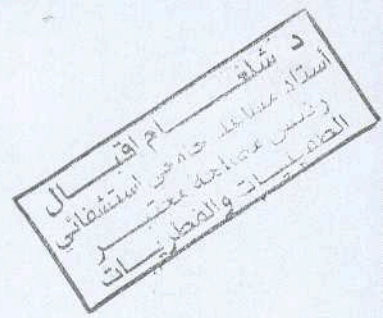 د شلغــــام اقبــــال
أستاذ مساعد جامعي استشفائي
رئيس مصلحة مختبــر
الطفيليــات والفطريــات